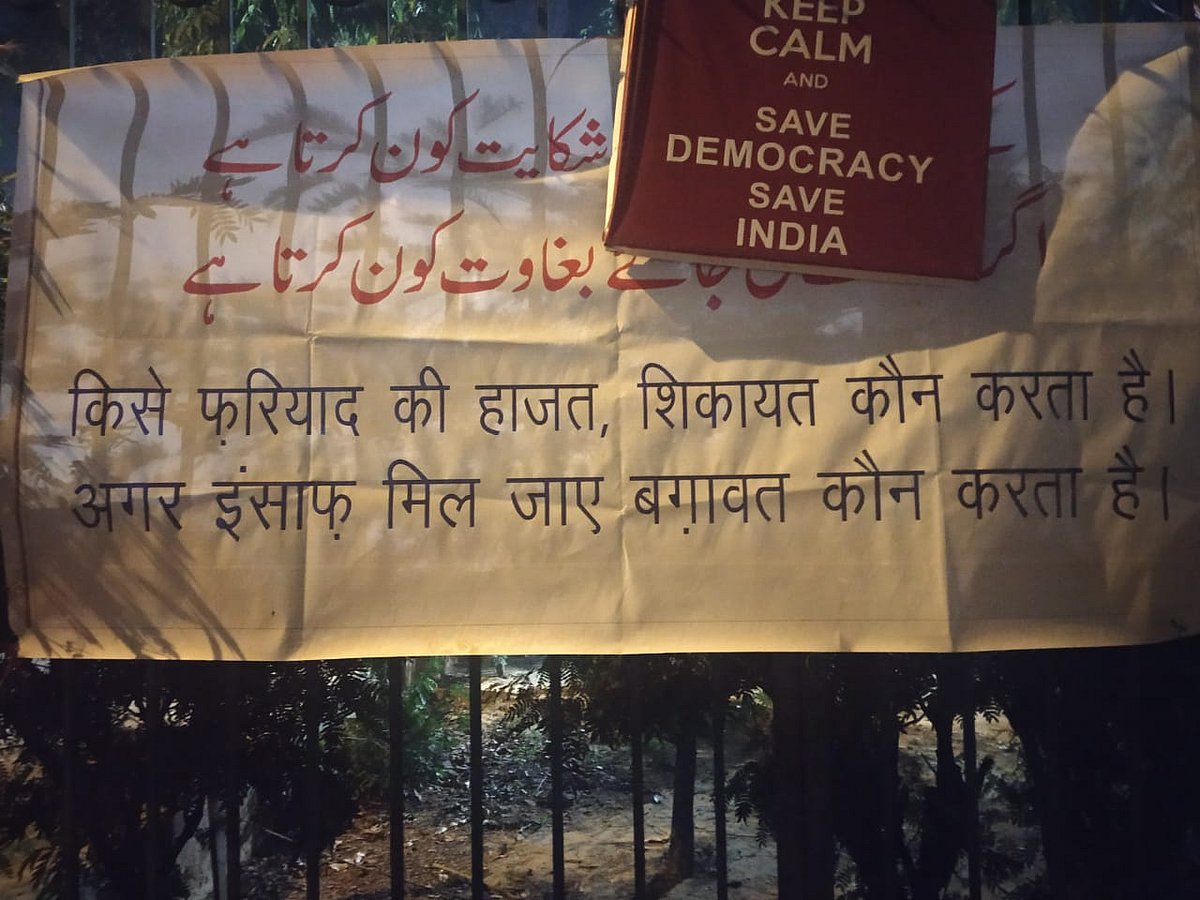 KEEP
CALM
AND
SAVE
DEMOCRACY
SAVE
INDIA
شکایت کون کرتا ہے
اگر جائے بغاوت کون کرتا ہے
किसे फ़रियाद की हाजत, शिकायत कौन करता है।
अगर इंसाफ़ मिल जाए बग़ावत कौन करता है।